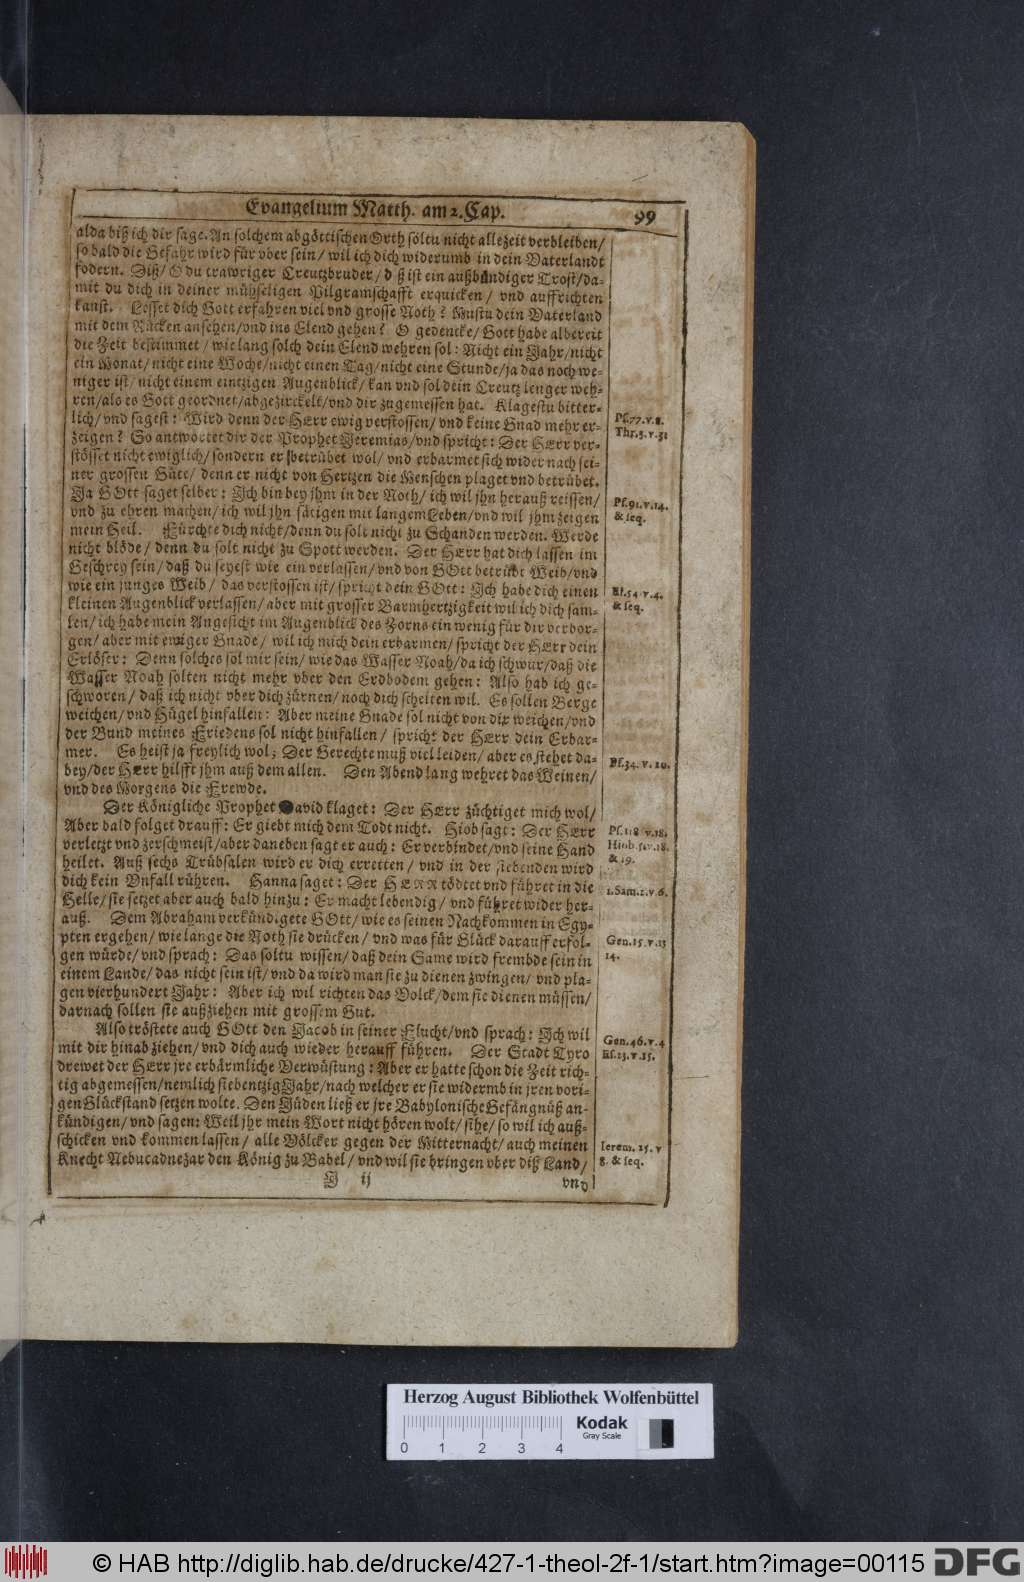 Evangelium Matth. am 2. Cap. 99
alda biß ich dir sage. An solchem abgöttischen Orth soltu nicht allezeit verbleiben/
so bald die Gefahr wird für vber sein/ wil ich dich widerumb in dein Vaterlandt
fodern. Diß/ O du trawriger Creutzbruder/ d ß ist ein außbündiger Trost/ da-
mit du dich in deiner mühseligen Pilgramschafft erquicken/ vnd auffrichten
kanst. Lesset dich Gott erfahren viel vnd grosse Noth? Mustu dein Vaterland
mit dem Rücken ansehen/ vnd ins Elend gehen? O gedencke/ Gott habe albereit
die Zeit bestimmet/ wie lang solch dein Elend wehren sol: Nicht ein Jahr/ nicht
ein Monat/ nicht eine Woche/ nicht einen Tag/ nicht eine Stunde/ ja das noch we-
niger ist/ nicht einem eintzigen Augenblick/ kan vnd sol dein Creutz lenger weh-
ren/ als es Gott geordnet/ abgezirckelt/ vnd dir zugemessen hat. Klagestu bitter-
lich/ vnd sagest: Wird denn der HErr ewig verstossen/ vnd keine Gnad mehr er-
Ps. 77. v. 8.
zeigen? So antwortet dir der Prophet Jeremias/ vnd spricht: Der HErr ver-
Thr. 3. v. 31
stösset nicht ewiglich/ sondern er betrübet wol/ vnd erbarmet sich wider nach sei-
ner grossen Güte/ denn er nicht von Hertzen die Menschen plaget vnd betrübet.
Ja GOtt saget selber: Ich bin bey jhm in der Noth/ ich wil jhn herauß reissen/
Ps. 91. v. 14.
vnd zu ehren machen/ ich wil jhn sätigen mit langem Leben/ vnd wil jhm zeigen
& seq.
mein Heil. Fürchte dich nicht/ denn du solt nicht zu Schanden werden. Werde
nicht blöde/ denn du solt nicht zu Spott werden. Der HErr hat dich lassen im
Geschrey sein/ daß du seyest wie ein verlassen/ vnd von GOtt betrübt Weib/ vnd
wie ein junges Weib/ das verstossen ist/ spricht dein GOtt: Ich habe dich einen
Es. 54. v. 4.
kleinen Augenblick verlassen/ aber mit grosser Barmhertzigkeit wil ich dich sam-
& seq.
len/ ich habe mein Angesicht im Augenblick des Zorns ein wenig für dir verbor-
gen/ aber mit ewiger Gnade/ wil ich mich dein erbarmen/ spricht der HErr dein
Erlöser: Denn solches sol mir sein/ wie das Wasser Noah/ da ich schwur/ daß die
Wasser Noah solten nicht mehr vber den Erdbodem gehen: Also hab ich ge-
schworen/ daß ich nicht vber dich zürnen/ noch dich schelten wil. Es sollen Berge
weichen/ vnd Hügel hinfallen: Aber meine Gnade sol nicht von dir weichen/ vnd
der Bund meines Friedens sol nicht hinfallen/ spricht der HErr dein Erbar-
mer. Es heist ja freylich wol; Der Gerechte muß viel leiden/ aber es stehet da-
Ps. 34. v. 20.
bey/ der HErr hilfft jhm auß dem allen. Den Abend lang wehret das Weinen/
vnd des Morgens die Frewde.
Der Königliche Prophet David klaget: Der HErr züchtiget mich wol/
Aber bald folget drauff: Er giebt mich dem Todt nicht. Hiob sagt: Der HErr
Ps. 118 v. 18.
verletzt vnd zerschmeist/ aber daneben sagt er auch: Er verbindet/ vnd seine Hand
Hiob. 5. v. 18.
heilet. Auß sechs Trübsalen wird er dich erretten/ vnd in der siebenden wird
& 19.
dich kein Vnfall rühren. Hanna saget: Der HERR tödtet vnd führet in die
1. Sam. 2. v. 6.
Helle/ sie setzet aber auch bald hinzu: Er macht lebendig/ vnd führet wider her-
auß. Dem Abraham verkündigete GOtt/ wie es seinen Nachkommen in Egy-
pten ergehen/ wie lange die Noth sie drücken/ vnd was für Glück darauff erfol-
Gen. 15. v. 13
gen würde/ vnd sprach: Das soltu wissen/ daß dein Same wird frembde sein in
14.
einem Lande/ das nicht sein ist/ vnd da wird man sie zu dienen zwingen/ vnd pla-
gen vierhundert Jahr: Aber ich wil richten das Volck/ dem sie dienen müssen/
darnach sollen sie außziehen mit grossem Gut.
Also tröstete auch GOtt den Jacob in seiner Flucht/ vnd sprach: Ich wil
mit dir hinab ziehen/ vnd dich auch wieder herauff führen. Der Stadt Tyro
Gen. 46. v. 4
drewet der HErr jre erbärmliche Verwüstung: Aber er hatte schon die Zeit rich-
Es. 23. v. 15.
tig abgemessen/ nemlich siebentzig Jahr/ nach welcher er sie widermb in jren vori-
gen Glückstand setzen wolte. Den Jüden ließ er jre Babylonische Gefängnüß an-
kündigen/ vnd sagen: Weil jhr mein Wort nicht hören wolt/ sihe/ so wil ich auß-
schicken vnd kommen lassen/ alle Völcker gegen der Mitternacht/ auch meinen
Ierem. 25. v
Knecht Nebucadnezar den König zu Babel/ vnd wil sie bringen vber diß Land/
8. & seq.
J ij vnd
Herzog August Bibliothek Wolfenbüttel
Kodak
Gray Scale
0 1 2 3 4
© HAB http://diglib.hab.de/drucke/427-1-theol-2f-1/start.htm?image=00115 DFG